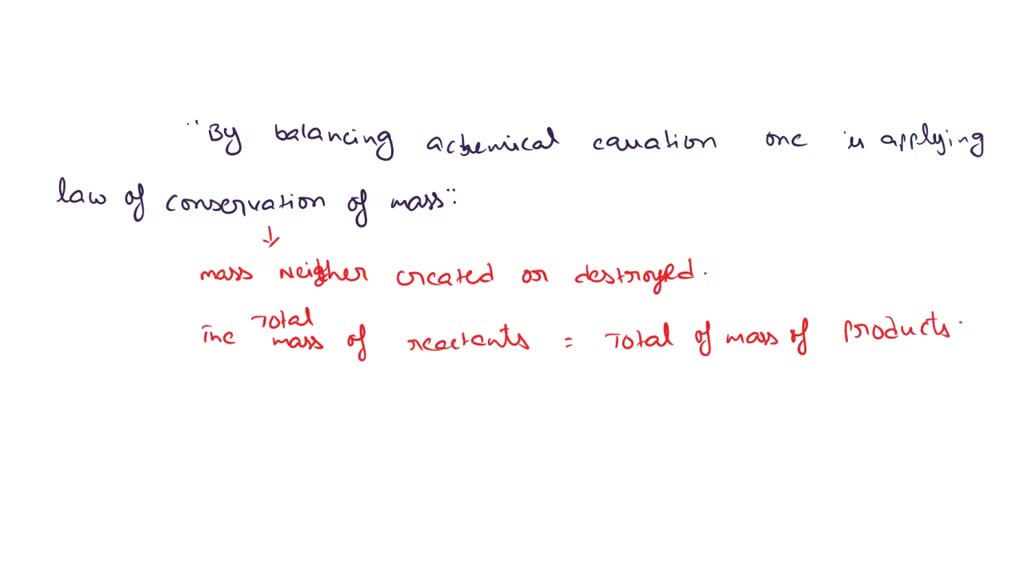 "By balancing a chemical equation one is applying
law of conservation of mass"
↓
mass neither created or destroyed.
The Total mass of reactants = Total of mass of products.